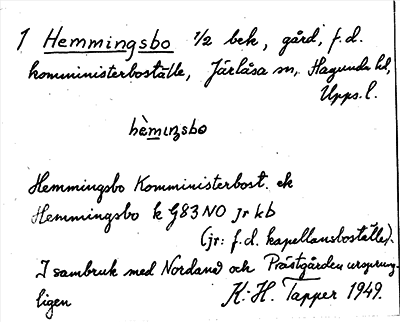 1 Hemmingsbo 1/2 bek, gård, f.d.
komministerboställe, Järlåsa sn, Hagunda hd,
Upps. l.
hèmiŋsbo
Hemmingsbo Komministerbost. ek
Hemmingsbo k G83 NO Jr kb
(jr: f.d. kapellansboställe).
I sambruk med Nordanö och Prästgården ursprung-
ligen K.-H. Tapper 1949.